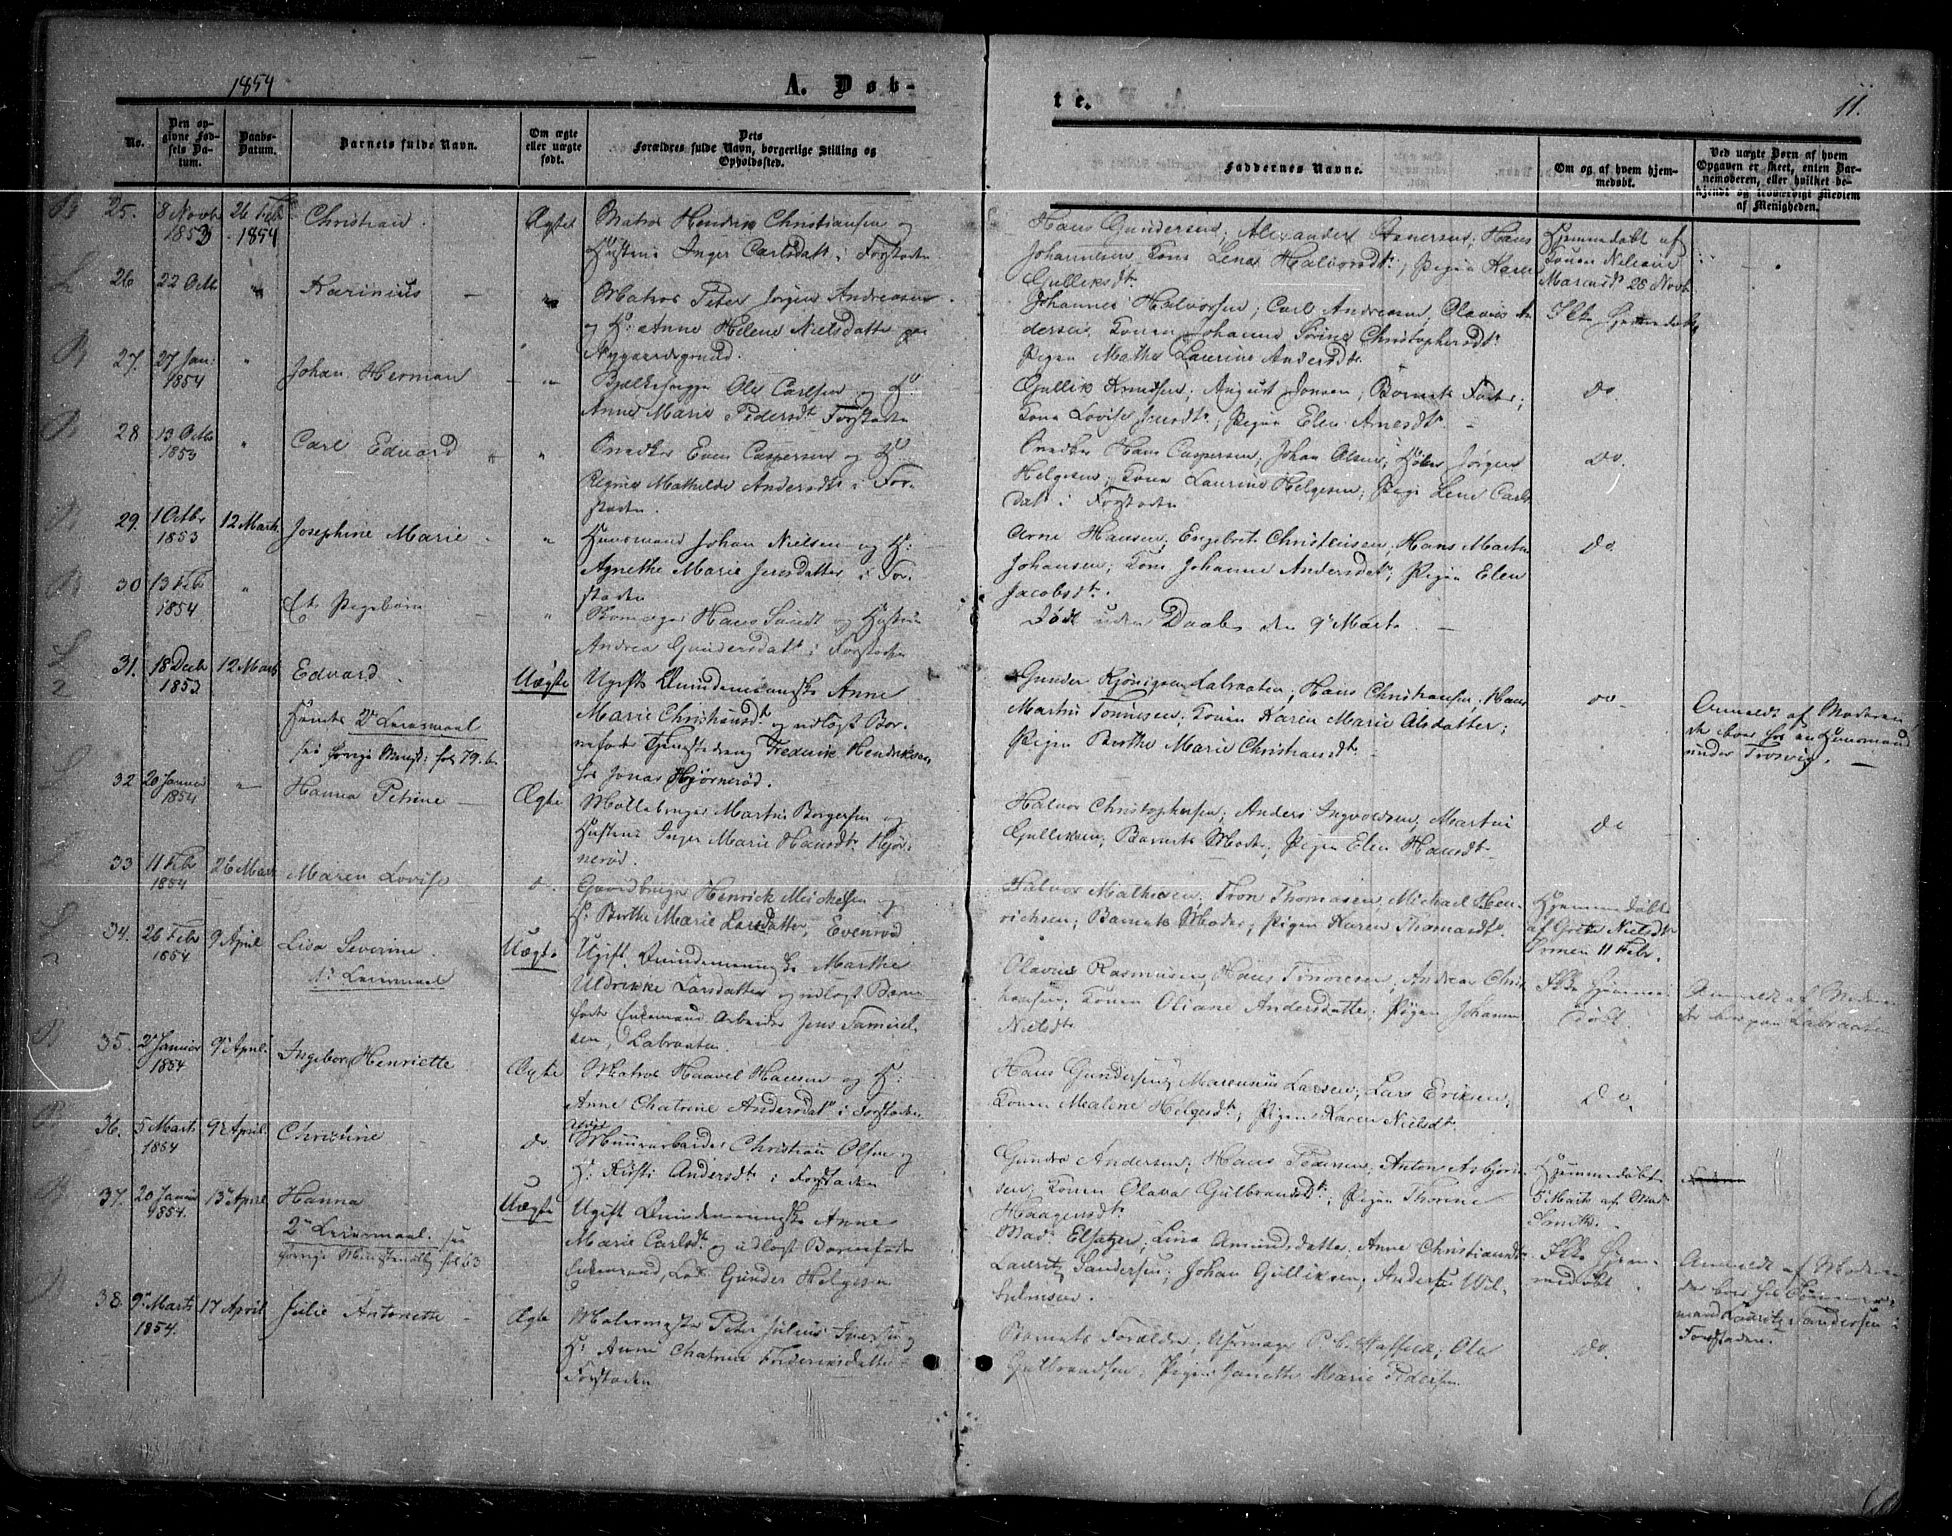 1854
A. Døb-
te.
11.
No.
Den op-
givne Fød-
sels Da-
tum.
Daabs-
Datum.
Barnets fulde Navn.
Om ægte
eller uægte
født.
Dets
Forældres fulde Navn, borgerlige Stilling og
Opholdssted.
Faddernes Navne.
Om og af hvem hjem-
medøbt.
Ved uægte Børn af hvem
Opgaven er skeet, enten Bar-
nemoderen, eller hvilket be-
kjendt og troværdigt Medlem
af Menigheden.
25. 8 Novb 26 Feb Christian Ægte Matros Hendrik Christiansen og
1853 1854 Hustru Inger Carlsdatt. i Forstaden
Hans Gundersen; Alexander ; Hans
Johannesen; Kone Lena Halvorsdt; Pigen Karen
Gulliksdt.
Hjemmedøbt af
Konen
28 Novb
26 22 Octb " Karinius " Matros Peter Jørgen Andreasen
og H: Anne Helene Nielsdatter paa
Nygaardsgrund.
Johannes Halvorsen; Carl Andreasen, Olavus An-
dersen. Konen Johanne Sørine Christophersdt.
Pigen Mathea Laurine Andersdt.
Ikke hjemmedøbt
27. 27 Jan: " Johan Herman " Ole Carlsen og H:
1854 Anne Marie Pedersdt Forstaden
Gullik Knudsen; August Jonsen; Barnets Fader;
Kone Lovise Jensdt; Pigen Elen Arnesdt.
Do.
28 13 Octb " Carl Edvard " Snedker Even Caspersen og H:
1853 Mathilde Andersdt i For-
staden.
Snedker Hans Caspersen; Johan Olsen; Jørgen
Helgesen; Kone Laurine Helgesen; Pige Lene Carls-
datt i Forstaden
Do.
29. 1 Octbr 12 Marts Josephine Marie " Huusmand Johan Nielsen og H:
1853 Agnethe Marie Jensdatter i For-
staden
Arne Hansen; Engebret Christensen; Hans Martin
Johansen; Kone Johanne Andersdt; Pigen Elen
Jacobsdt.
Do.
30 13 Feb " Et Pigebarn " Hans Lundt og Hustru
1854 Andrea Gundersdatt. i Forstaden
Død uden Daab den 9 Marts
31. 18 Decb 12 Marts Edvard. Uægte Ugifte Qvindemenneske Anne
1853 Marie Christiansdt og udlagt Bar-
nefader Tjenestedreng Frederik Hendriksen
hos Jonas Hjørnerød.
2 Leiermaal
fol 79.b.
Gunder Labraaten; Hans Christiansen; Hans
Martin Tønnesen; Konen Karen Marie Olsdatter;
Pigen Berthe Marie Christiansdt.
do
Anmeldt af Moderen
under Trosvig.
32 20 Januar " Hanna Petrine Ægte Møllebruger Martin Borgersen og
1854 Hustru Inger Marie Hansdt. Hjør-
nerød.
Halvor Christophersen; Anders Ingvoldsen, Martin
Gulliksen; Barnets Moder; Pigen Elen Hansdt.
do
33 11 Feb 26 Marts Maren Lovise d. Gaardbruger Henrick Michelsen og
1854 H: Berthe Marie Larsdatter, Evenrød
Halvor Mathisen; Tron Thomasen, Michael Hen-
richsen; Barnets Moder; Pigen Karen Thomasdt.
Hjemmedøbt
af Grete Nielsdt
11 Febr.
34. 26 Febr 9 April Lisa Severine. Uægte Ugift Qvindemenneske Marthe
1854 Leiermaal Uldrikke Larsdatter og udlagt Barne-
fader Enkemand Arbeider Jens Samuel-
sen, Labraaten.
Olavus Rasmusen; Hans Tønnesen, Andreas Chris-
tiansen; Konen Oliane Andersdatter; Pigen Johanne
Nielsdt
Ikke hjemme-
døbt.
Anmeldt af Moderen
der bor paa Labraaten
35. 2 Januar 9 April. Ingeborg Henriette Ægte Matros Haavel Hansen og H:
1854 Anne Chatrine Andersdatt i Forstaden
Hans Gundersen; Marcunius Larsen; Lars Eriksen;
Konen Malene Helgesdt; Pigen Karen Nielsdt.
Do.
36. 5 Marts 9 April. Christine do. Muurarbeider Christian Olsen og
1854 H: Kirsti Andersdt i Forstaden
Andersen; Hans Pedersen; Anton Asbjørn-
sen; Konen Olava Gulbrandsdt; Pigen Thorine
Haagensdt.
Hjemmedøbt
5 Marts af Mad
Smith.
37. 20 Januar 13 April Hanna Uægte Ugift Qvindemenneske Anne
1854. Marie Carlsdt og udlagt Barnefader
Enkemand, Gunder Helgesen
2 Leiermaal.
fol 63
Mad. ; Lina Amundsdatter. Anne Christiansdt
Lauritz Sandersen; Johan Gulliksen; Anders Wil-
helmsen.
Ikke Hjem-
medøbt
Anmeldt af Moderen
der boer hos
mand Lauritz Sandersen i
Forstaden.
38. 9 Marts 17 April Julie Antonette Ægte Malermester Peter Julius Iversen og
1854. H: Anne Chatrine Frederiksdatter
Forstaden
Barnets Forældre; Uhrmager P. C. ; Ole
Gulbrandsen; Pigen Marie Pedersen
do.